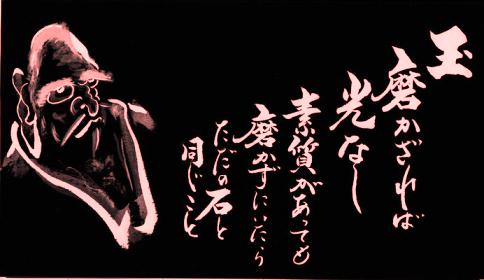 玉
磨かざれば
光なし
素質があっても
磨かずにいたら
ただの石と
同じこと